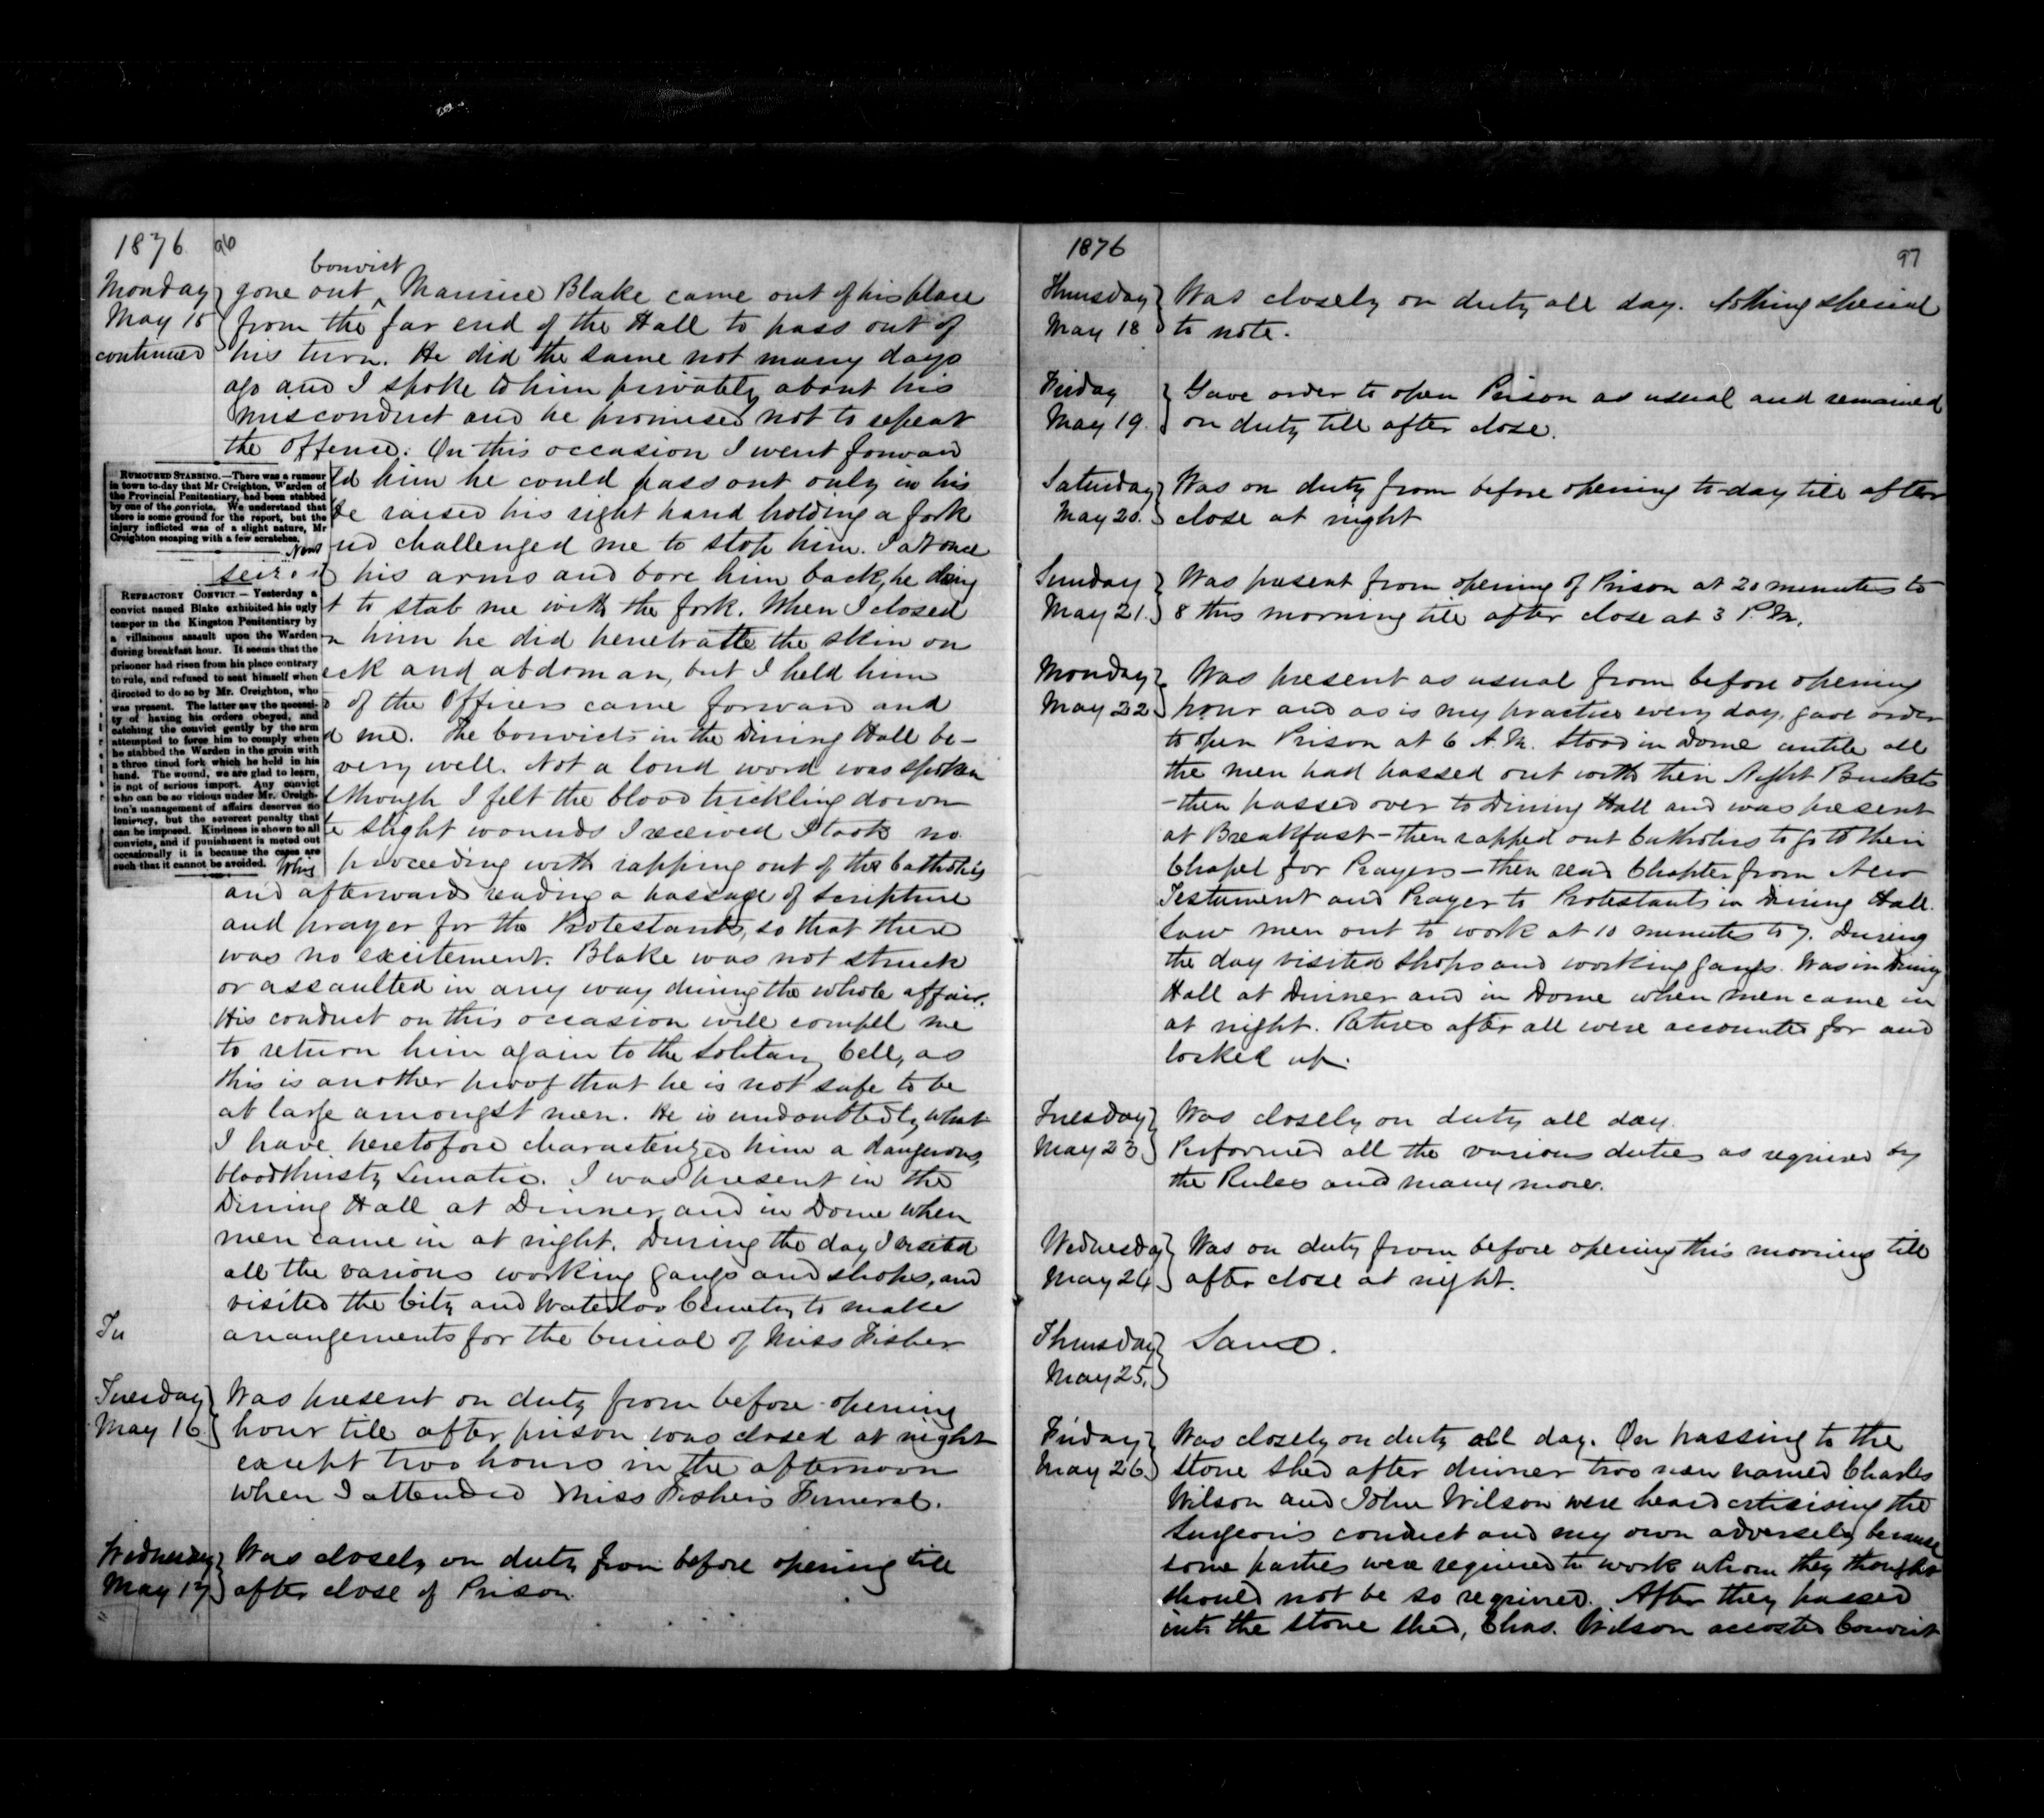 1876
96
Monday
May 15
continued
convict
gone out ^ Maurice Blake came out of his place
from the far end of the Hall to pass out of
his turn. He did the same not many days
ago and I spoke to him privately about his
misconduct and he promised not to repeat
the offence. On this occasion I went forward
ld him he could pass out only in his
He raised his right hand holding a fork
nd challenged me to stop him. I at once
seized his arms and bore him back, he
t to stab me with the fork. When I closed
n him he did penetratte the skin on
eck and abdoman, but I held him
of the Officers came forward and
d me. The Convicts in the Dining Hall be-
very well. Not a loud word was spoken
lthough I felt the blood trickling down
te slight wounds I received I took no
proceeding with rapping out of the Catholics
and afterwards reading a passage of Scripture
and prayer for the Protestants, so that there
was no excitement. Blake was not struck
or assaulted in any way during the whole affair.
His conduct on this occasion will compell me
to return him again to the Solitary Cell, as
this is another proof that he is not safe to be
at large amongst men. He is undoubtedly what
I have heretofore characterized him a dangerous,
bloodthirsty Lunatic. I was present in the
Dining Hall at Dinner and in Dome when
men came in at night. During the day I visited
all the various working gangs and shops, and
visited the City and Waterloo Cemetery to make
Tu
arrangements for the burial of Miss Fisher
RUMOURED STABBING.—There was a rumour
in town to-day that Mr Creighton, Warden of
the Provincial Penitentiary, had been stabbed
by one of the convicts. We understand that
there is some ground for the report, but the
injury inflicted was of a slight nature, Mr
Creighton escaping with a few scratches.
News
REFRACTORY CONVICT.—Yesterday a
convict named Blake exhibited his ugly
temper in the Kingston Penitentiary by
a villainous assault upon the Warden
during breakfast hour. It seems that the
prisoner had risen from his place contrary
to rule, and refused to seat himself when
directed to do so by Mr. Creighton, who
was present. The latter saw the necessi-
ty of having his orders obeyed, and
catching the convict gently by the arm
attempted to force him to comply when
he stabbed the Warden in the groin with
a three tined fork which he held in his
hand. The wound, we are glad to learn,
is not of serious import. Any convict
who can be so vicious under Mr. Creigh-
ton's management of affairs deserves no
leniency, but the severest penalty that
can be imposed. Kindness is shown to all
convicts, and if punishment is meted out
occasionally it is because the cases are
such that it cannot be avoided.
Whig
Tuesday
May 16
Was present on duty from before opening
hour till after prison was closed at night
except two hours in the afternoon
when I attended Miss Fisher's Funeral.
Wednesday
May 17
Was closely on duty from before opening till
after close of Prison
1876
97
Thursday
May 18
Was closely on duty all day. Nothing special
to note.
Friday
May 19.
Gave order to open Prison as usual and remained
on duty till after close.
Saturday
May 20.
Was on duty from before opening to-day till after
close at night
Sunday
May 21.
Was present from opening of Prison at 20 minutes to
8 this morning till after close at 3 P.M.
Monday
May 22
Was present as usual from before opening
hour and as is my practice every day, gave order
to open Prison at 6 A.M. Stood in Dome untill all
the men had passed out with their Night Buckets
-then passed over to Dining Hall and was present
at Breakfast - then rapped out Catholics to go to their
Chapel for Prayers - then read Chapter from New
Testament and Prayer to Protestants in Dining Hall.
Saw men out to work at 10 minutes to 7. During
the day visited shops and working gangs. Was in Dining
Hall at Dinner and in Dome when men came in
at night. Retired after all were accounted for and
locked up.
Tuesday
May 23
Was closely on duty all day.
Performed all the various duties as required by
the Rules and many more.
Wednesday
May 24
Was on duty from before opening this morning till
after close at night.
Thursday
May 25.
Same.
Friday
May 26
Was closely on duty all day. On passing to the
stone shed after dinner two men named Charles
Wilson and John Wilson were heard critisising the
Surgeon's conduct and my own adversely because
some parties were required to work whom they thought
should not be so required. After they passed
into the stone shed, Chas. Wilson accosted Convict